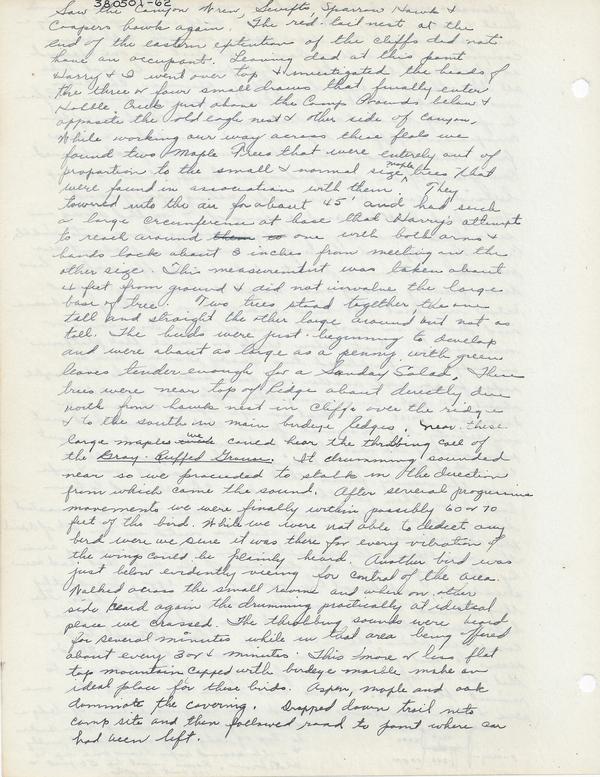 380501-62
Saw the Canyon Wren, Swifts, Sparrow Hawk &
Coopers hawk again. The red-tail nest at the
end of the eastern extention of the cliffs did not
have an occupant. Leaving dad at this point
Harry & I went over top & investigated the heads of
the three or four small draws that finally enter
Hobble Creek just above the Camp Grounds below &
opposite the old eagle nest & other side of canyon.
While working our way across these flats we
found two Maple Trees that were entirely out of
proportion to the small & normal size maple trees that
were found in association with them. They
towered into the air for about 45' and had such
a large circumference at base that Harry's attempts
to reach around them to one with both arms &
hands lack about 8 inches from meeting on the
other size. This measurement was taken about
4 feet from ground & did not involve the large
base of tree. Two trees stood together, the one
tall and straight the other large around but not as
tall. The buds were just beginning to develop
and were about as large as a penny with green
leaves tender enough for a Sunday Salad. These
trees were near top of Ridge about directly due
north from hawk nest in cliffs over the ridge
& to the south in main birdeye ledges. Near these
large maples we could hear the throbbing call of
the Gray-Ruffed Grouse. It drumming sounded
near so we proceeded to stalk in the direction
from which came the sound. After several progressive
movements we were finally within possibly 60 or 70
feet of the bird. While we were not able to dedect any
bird were we sure it was there for every vibration of
the wings could be plainly heard. Another bird was
just below evidently vieing for control of the area.
Walked across the small ravine and when on other
side heard again the drumming practically at identical
place we crossed. The throbbing sounds were heard
for several minutes while in that area being offered
about every 3 or 4 minutes. This more or less flat
top mountain capped with birdeye marble make an
ideal place for these birds. Aspen, maple and oak
dominate the covering. Dropped down trail into
camp site and then followed road to point where car
had been left.